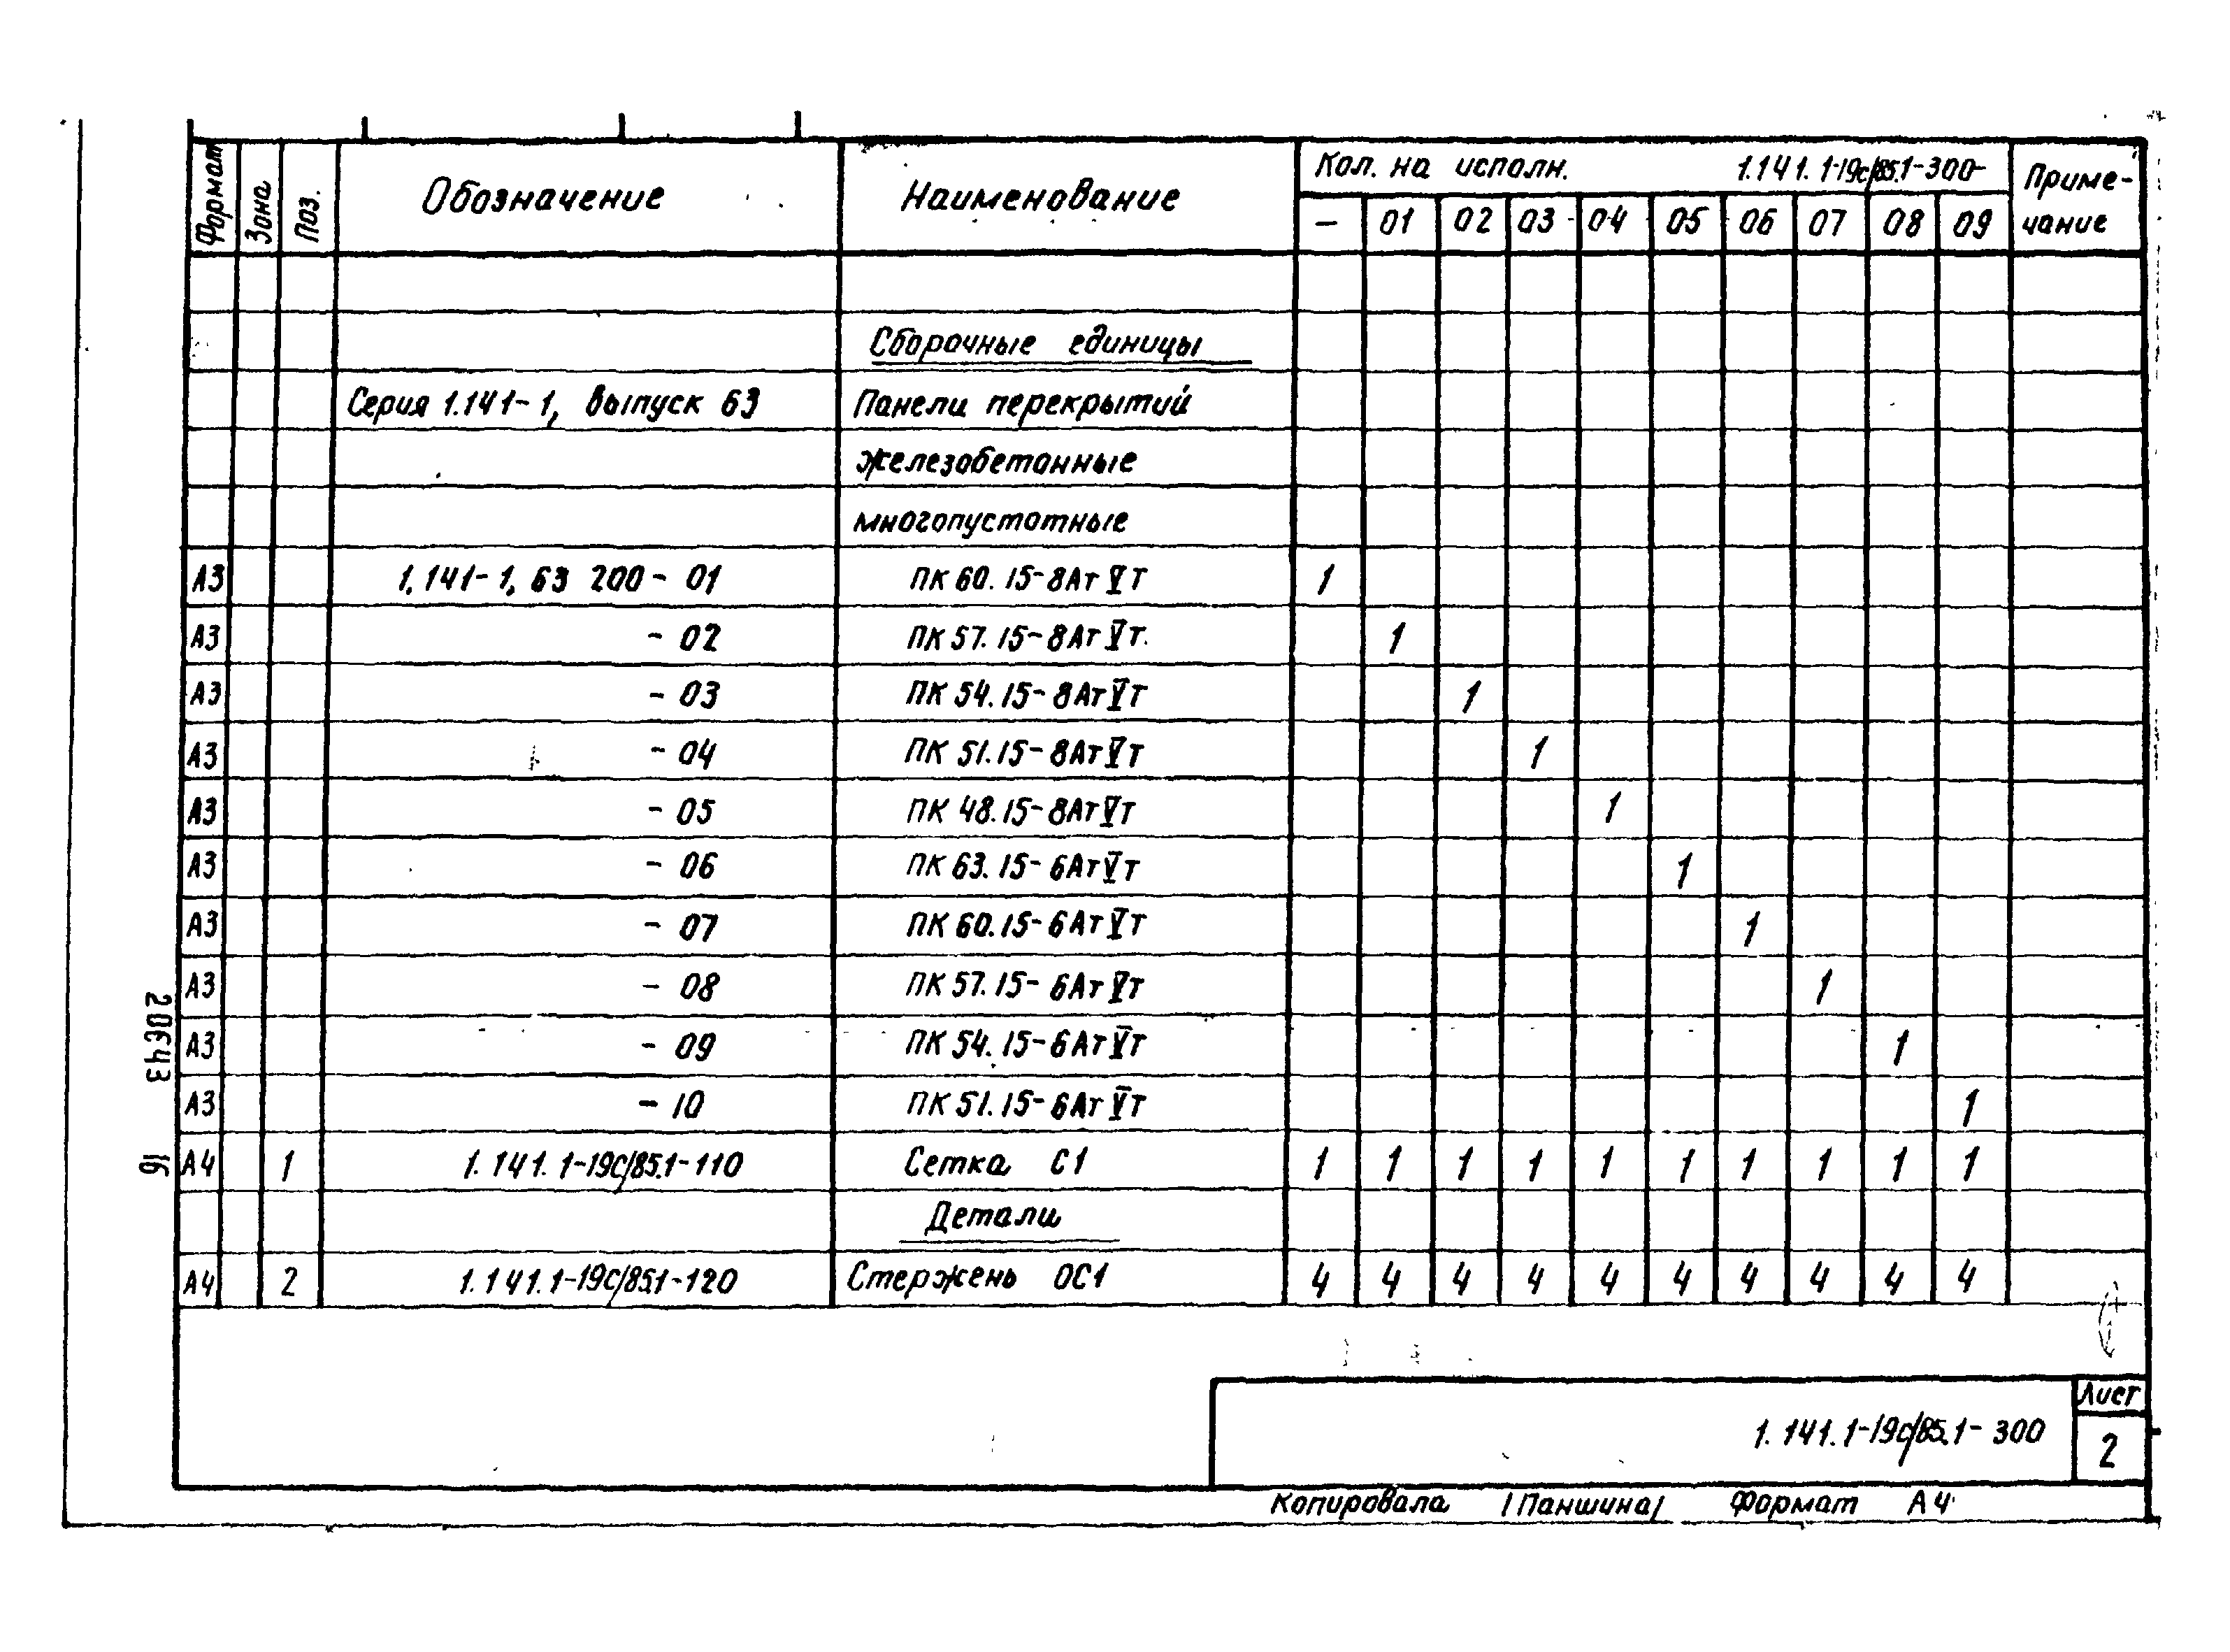 Формат Зона Поз. Обозначение Наименование Кол. на исполн. 1.141.1-19с/85.1-300- Приме-
чание
— 01 02 03 04 05 06 07 08 09
Сборочные единицы
Серия 1.141-1, выпуск 63 Панели перекрытий
железобетонные
многопустотные
А3 1.141-1. 63 200-01 ПК 60.15-8АтVТ 1
А3 -02 ПК 57.15-8АтVт. 1
А3 -03 ПК 54.15-8АтVТ 1
А3 -04 ПК 51.15-8АтVт 1
А3 -05 ПК 48.15-8АтVт 1
А3 -06 ПК 63.15-6АтVт 1
А3 -07 ПК 60.15-6АтVт 1
А3 -08 ПК 57.15-6АтVт 1
А3 -09 ПК 54.15-6АтVт 1
А3 -10 ПК 51.15-6АтVт 1
А4 1 1.141.1-19с/85.1-110 Сетка С1 1 1 1 1 1 1 1 1 1 1
Детали
А4 2 1.141.1-19с/85.1-120 Стержень ОС1 4 4 4 4 4 4 4 4 4 4
20643 16
1.141.1-19с/85.1-300
Лист
2
Копировала /Паншина/ Формат А4